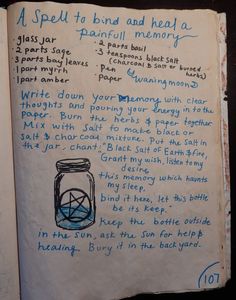 A Spell to bind and heal a
painfull memory
• glass jar
2 parts sage
3 parts bay leaves
1 part myrrh
1 part amber
• 2 parts basil
• 3 teaspoons black salt
(charcoal & salt or burned herbs)
• Pen
paper
Waning moon
Write down your memory with clear
thoughts and pouring your energy in to the
paper. Burn the herbs & paper together
Mix with Salt to make black or
salt & charcoal mixture. Put the salt in
the jar, chant: "Black Salt of Earth & fire,
Grant my wish, listen to my
desire
this memory which haunts
my sleep,
bind it here, let this bottle
be its keep."
keep the bottle outside
in the sun, ask the Sun for help &
healing. Bury it in the backyard.
107